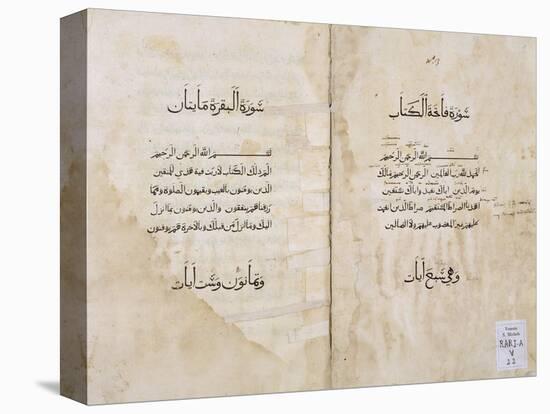 سورة فاتحة الكتاب
بسم الله الرحمن الرحيم
الحمد لله رب العالمين الرحمن الرحيم مالك
يوم الدين اياك نعبد واياك نستعين
اهدنا الصراط المستقيم صراط الذين انعمت
عليهم غير المغضوب عليهم ولا الضالين
وهي سبع ايات
سورة البقرة مايتان
بسم الله الرحمن الرحيم
الم ذلك الكتاب لا ريب فيه هدى للمتقين
الذين يومنون بالغيب ويقيمون الصلوة ومما
رزقناهم ينفقون والذين يومنون بما انزل
اليك وما انزل من قبلك وبالاخرة هم يوقنون
وثمانون وست ايات
Venezia
S. Michele
RARI-A
V
22